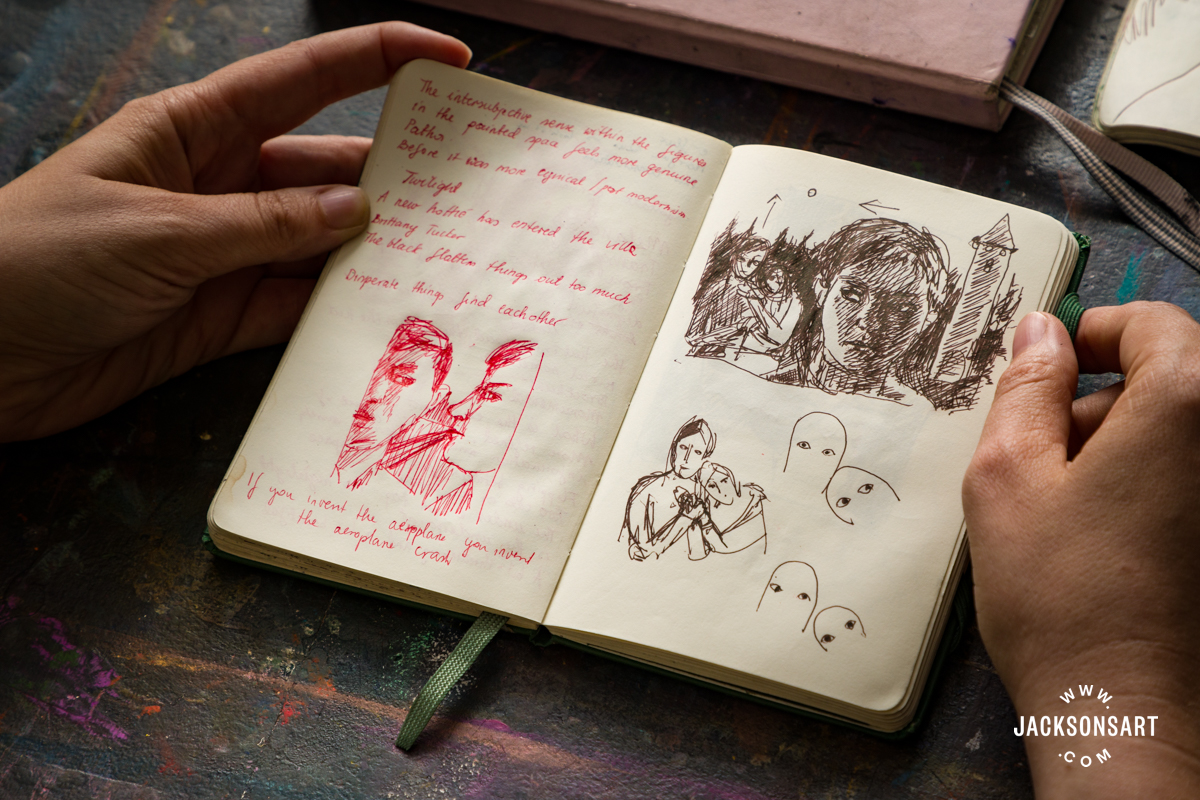 The intersubjective sense within the figures
in the painted space feels more genuine
Pathos
Before it was more cynical / post modernism
Twilight
A new hottie has entered the villa
Brittany Tucker
The black flattens things out too much
Disperate things find eachother
If you invent the aeroplane you invent
the aeroplane crash
WWW.
JACKSONSART
.COM